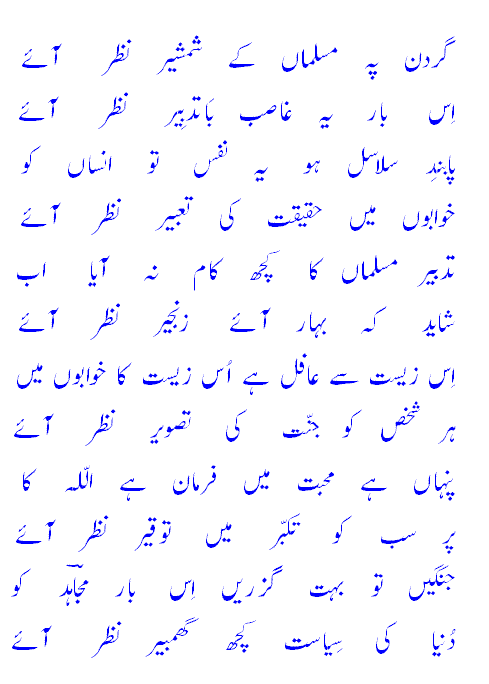 گردن پہ مسلماں کے شمشیر نظر آئے
اِس بار یہ غاصب بَاتدبِیر نظر آئے
پابندِ سلاسل ہو یہ نفس تو انساں کو
خوابوں میں حقیقت کی تعبیر نظر آئے
تدبیر مسلماں کا کچھ کام نہ آیا اب
شاید کہ بہار آئے زنجیر نظر آئے
اِس زیست سے عافل ہے اُس زیست کا خوابوں میں
ہر شخص کو جنّت کی تصویر نظر آئے
پنہاں ہے محبت میں فرمان ہے اللّہ کا
پر سب کو تکبّر میں توقیر نظر آئے
جنگیں تو بہت گزریں اِس بار مجاہد کو
دُنیا کی سِیاست کچھ گھمبیر نظر آئے